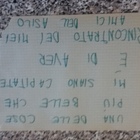 UNA DELLE COSE
PIÙ BELLE CHE
MI SIANO CAPITATE
E DI AVER
INCONTRATO DEI MIEI
AMICI DELL'ASILO